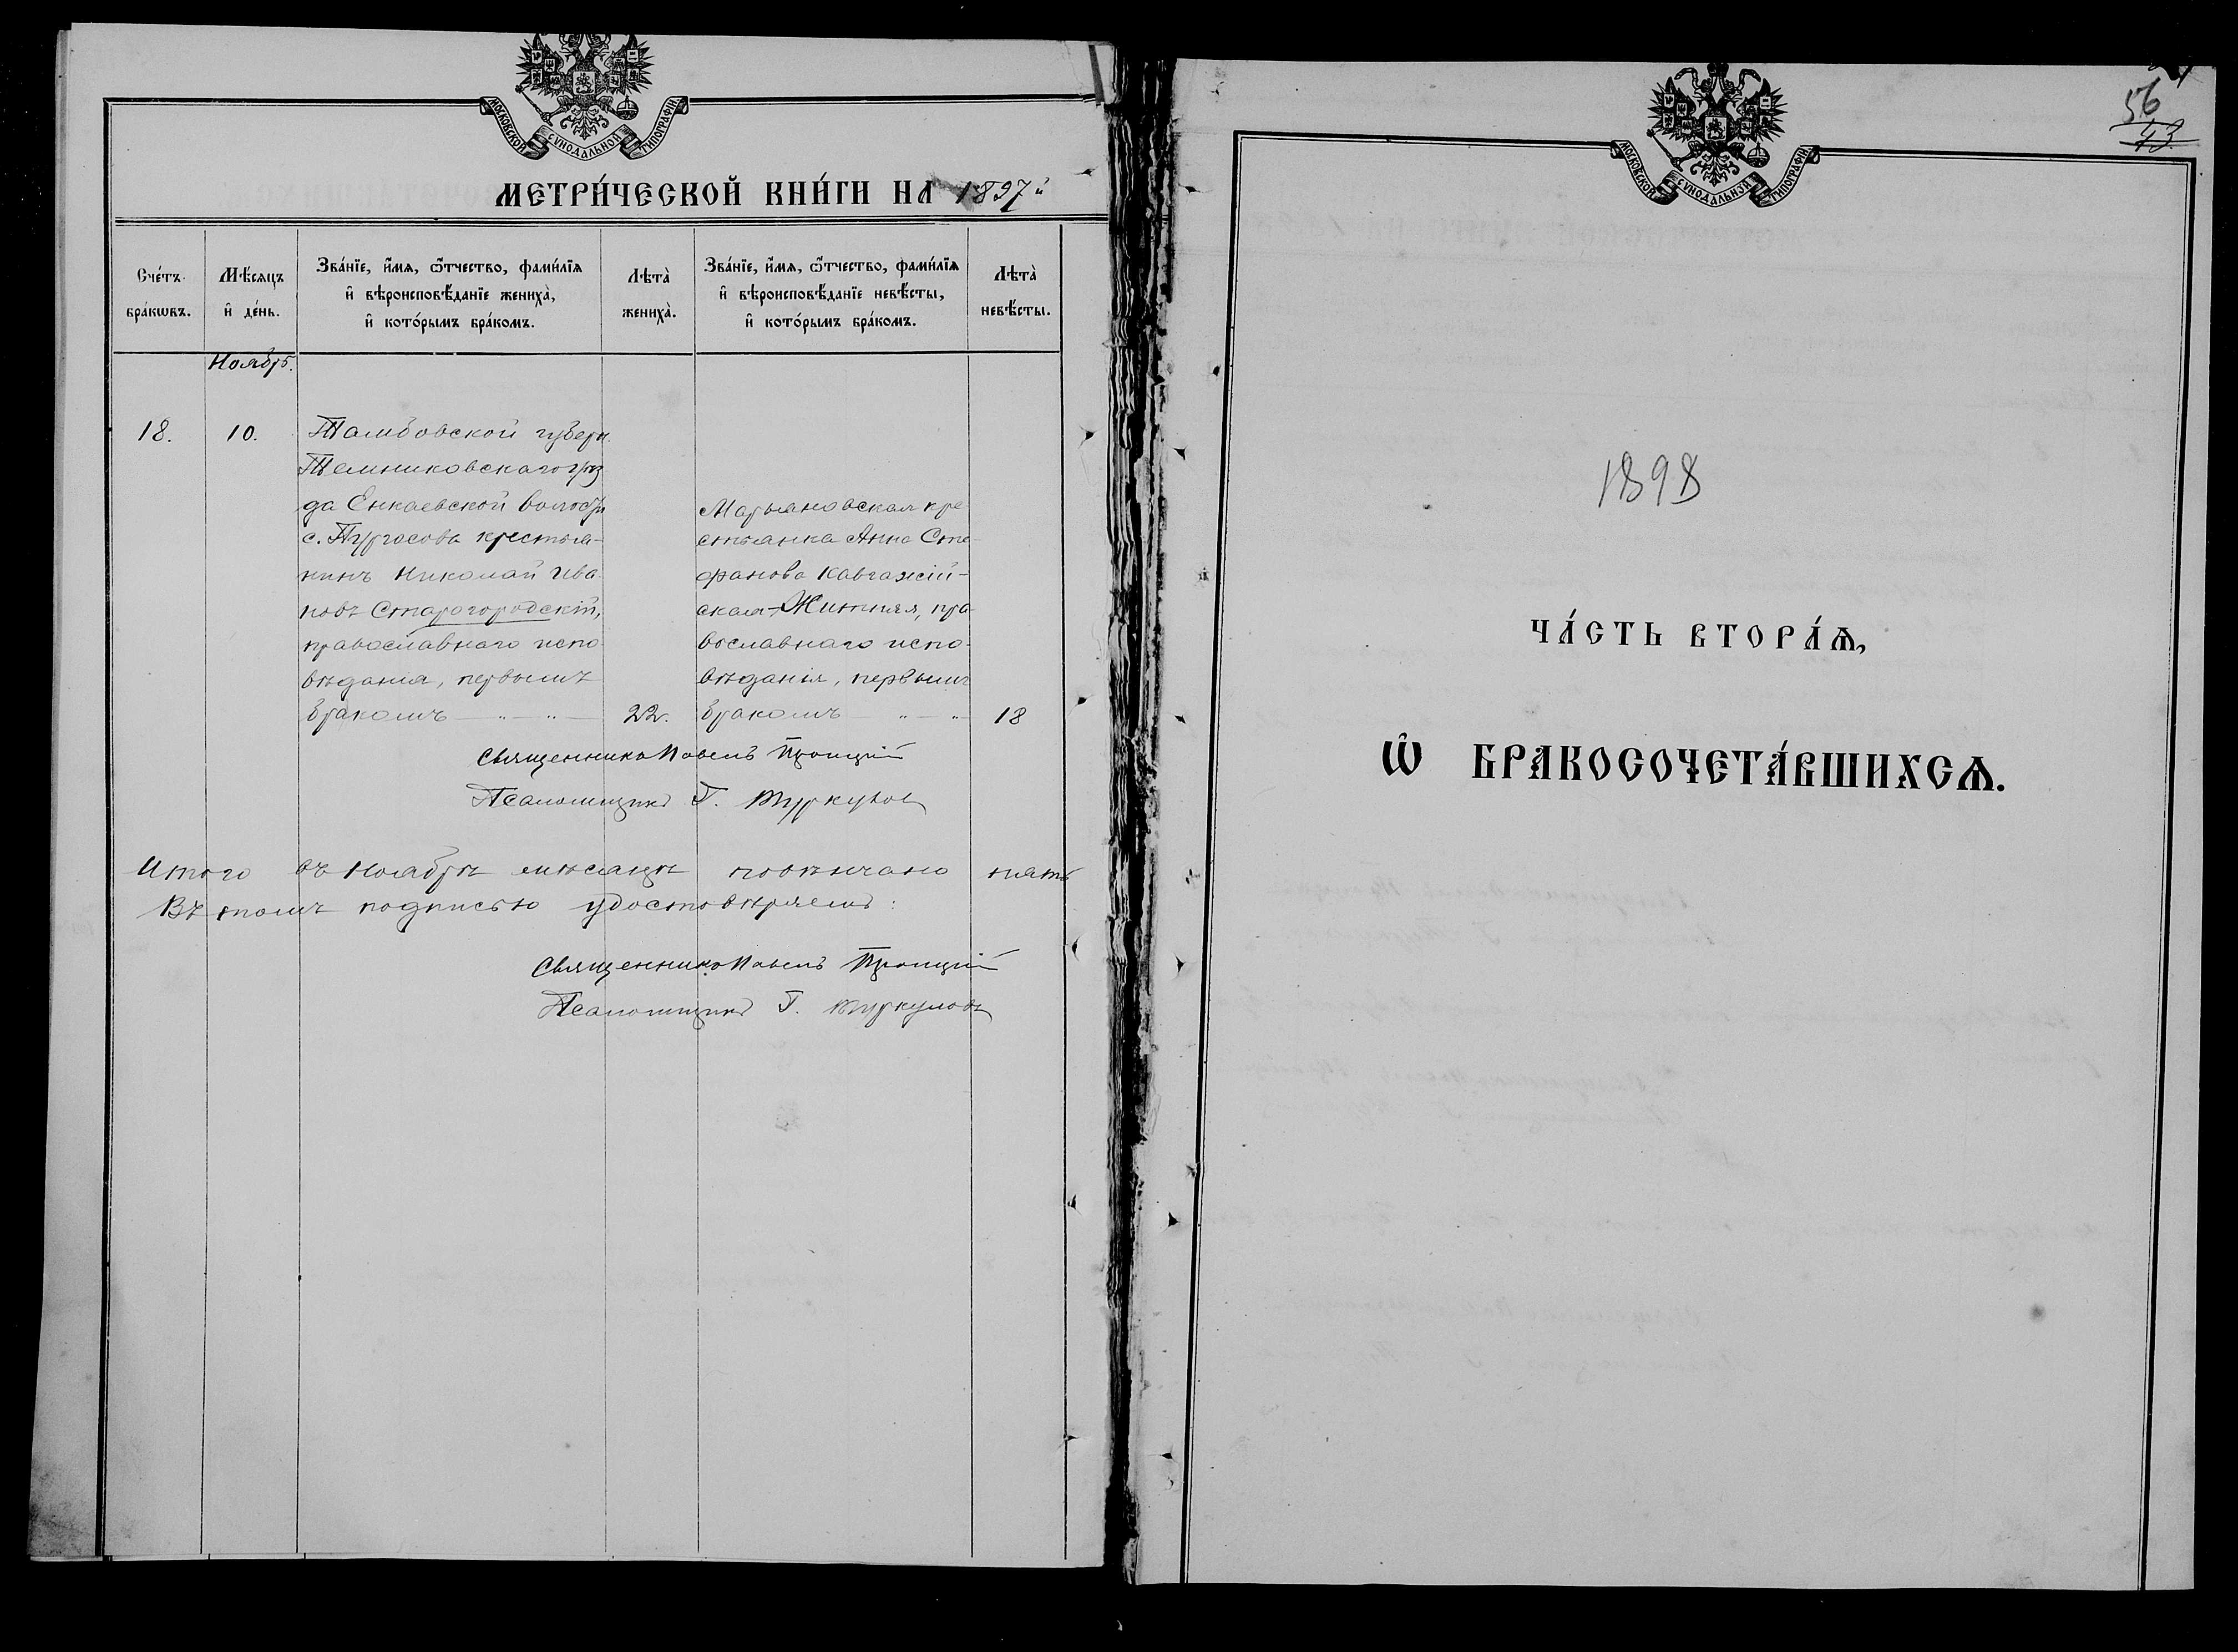 МОСКОВСКОЙ СѴНОДАЛЬНОЙ ТИПОГРАФІИ
МЕТРИ́ЧЕСКОЙ КНИ́ГИ НА 1897й
Сче́тъ бра́кѡвъ.
Мѣ́сяцъ и҆ де́нь.
Зва́нїе, и҆́мѧ, ѻ҆́тчество, фами́лїѧ и҆ вѣроисповѣ́данїе жениха̀, и҆ кото́рымъ бра́комъ.
Лѣта̀ жениха̀.
Зва́нїе, и҆́мѧ, ѻ҆́тчество, фами́лїѧ и҆ вѣроисповѣ́данїе невѣ́сты, и҆ кото́рымъ бра́комъ.
Лѣта̀ невѣ́сты.
Ноябрь.
18.
10.
Тамбовской губерн.
Темниковскаго уѣз
да Енкаевской волости
с. Пургосова крестья-
нинъ Николай Ива
новъ Старогородскій,
православнаго испо
вѣданія, первымъ
бракомъ
22.
Марьяновская кре
стьянка Анна Сте
фанова Кавгажій-
ская-Житняя, пра
вославнаго испо-
вѣданія, первымъ
бракомъ
18
Священникъ Павелъ Троицкій
Псаломщикъ Г. Туркулов
Итого въ Ноябрѣ мѣсяцѣ повѣнчано пять
Въ томъ подписью удостовѣряемъ:
Священникъ Павелъ Троицкій
Псаломщикъ Г. Туркуловъ
МОСКОВСКОЙ СѴНОДАЛЬНОЙ ТИПОГРАФІИ
56
43
1898
ЧА́СТЬ ВТОРА́Ѧ,
Ѽ БРАКОСОЧЕТА́ВШИХСѦ.